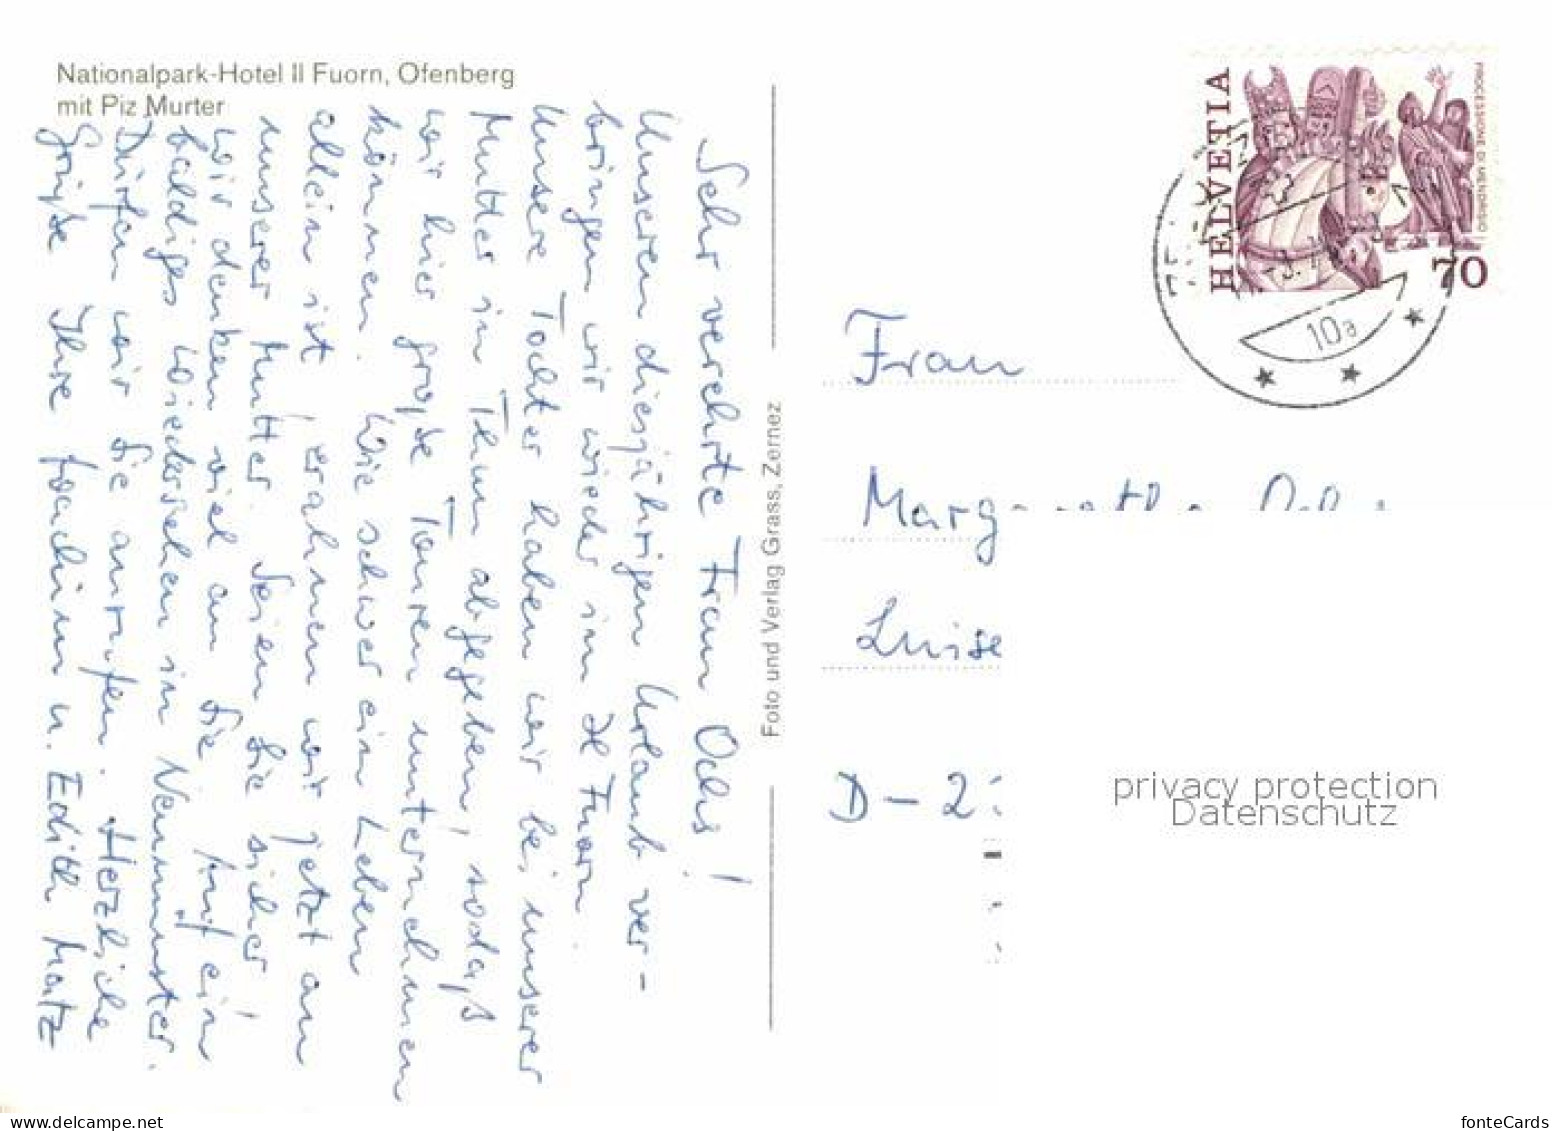 Nationalpark-Hotel Il Fuorn, Ofenberg
mit Piz Murter
Sehr verehrte Frau Ochs!
Unseren diesjährigen Urlaub ver-
bringen wir wieder im Il Fuorn.
Unsere Tochter haben wir bei unserer
Mutter in Thun abgegeben, sodaß
wir hier große Touren unternehmen
können. Wie schwer ein Leben
allein ist, erahnen wir jetzt an
unserer Mutter. Seien Sie sicher!
wir denken viel an Sie. Auf ein
baldiges Wiedersehen in Neumünster.
Dürfen wir Sie anrufen. Herzliche
Grüße Ihre Joachim u. Edith Matz
Foto und Verlag Grass, Zernez
HELVETIA
PROCESSIONE DI MENDRISIO
70
10a
Frau
Luise
D-2
privacy protection
Datenschutz
www.delcampe.net
fonteCards